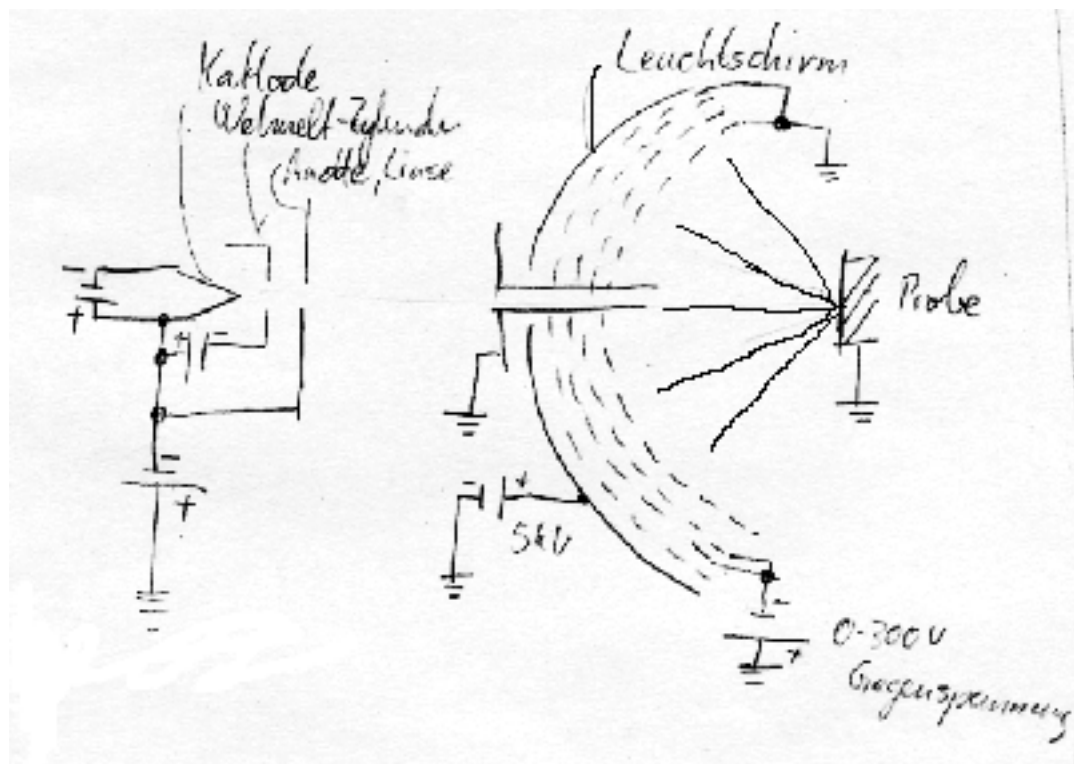 Kathode
Wehnelt-Zylinder
Anode, Linse
Leuchtschirm
Probe
-
+
+ -
-
+
- +
5kV
-
+
0-300V
Gegenspannung